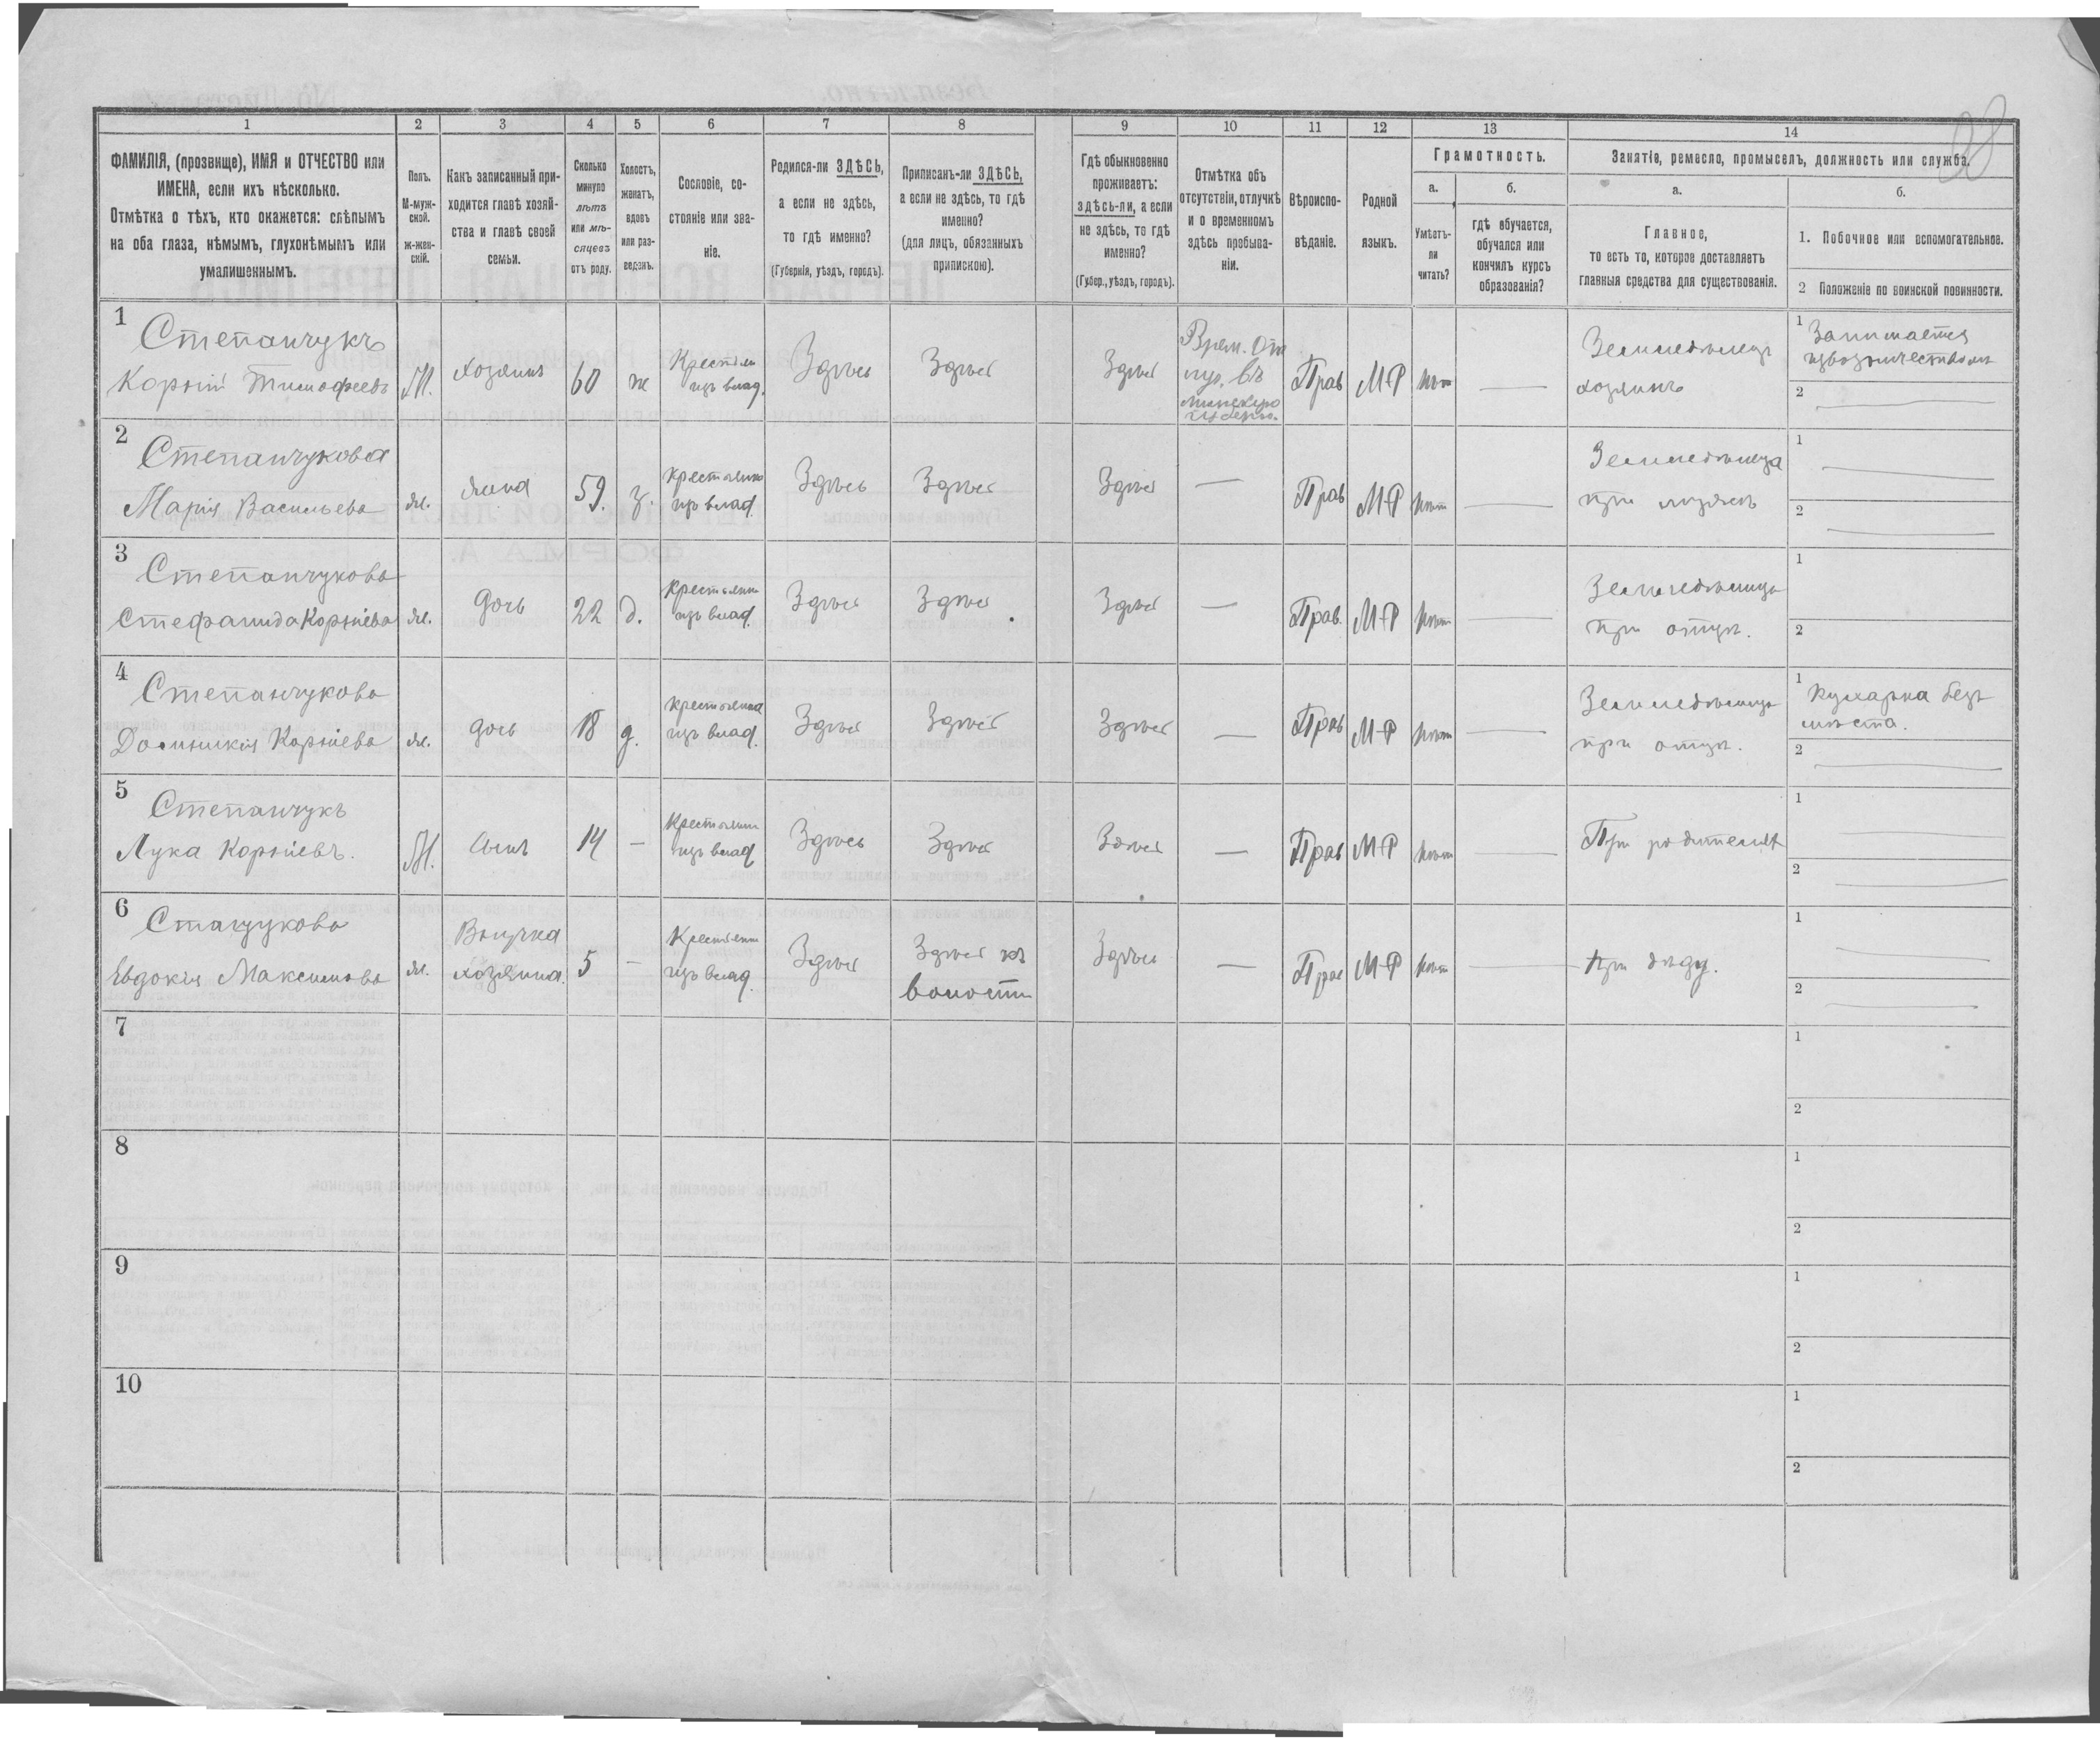 98
1 2 3 4 5 6 7 8 9 10 11 12 13 14
ФАМИЛІЯ, (прозвище), ИМЯ и ОТЧЕСТВО или
ИМЕНА, если ихъ нѣсколько.
Отмѣтка о тѣхъ, кто окажется: слѣпымъ
на оба глаза, нѣмымъ, глухонѣмымъ или
умалишеннымъ.
Полъ.
М-муж-
ской.
ж-жен-
скій.
Какъ записанный при-
ходится главѣ хозяй-
ства и главѣ своей
семьи.
Сколько
минуло
лѣтъ
или мѣ-
сяцевъ
отъ роду.
Холостъ,
женатъ,
вдовъ
или раз-
веденъ.
Сословіе, со-
стояніе или зва-
ніе.
Родился-ли ЗДѢСЬ,
а если не здѣсь,
то гдѣ именно?
(Губернія, уѣздъ, городъ).
Приписанъ-ли ЗДѢСЬ,
а если не здѣсь, то гдѣ
именно?
(для лицъ, обязанныхъ
припискою).
Гдѣ обыкновенно
проживаетъ:
здѣсь-ли, а если
не здѣсь, то гдѣ
именно?
(Губер., уѣздъ, городъ).
Отмѣтка объ
отсутствіи, отлучкѣ
и о временномъ
здѣсь пребыва-
ніи.
Вѣроиспо-
вѣданіе.
Родной
языкъ.
Грамотность.
а.
Умѣетъ-
ли
читать?
б.
гдѣ обучается,
обучался или
кончилъ курсъ
образованія?
Занятіе, ремесло, промыселъ, должность или служба.
а.
Главное,
то есть то, которое доставляетъ
главныя средства для существованія.
б.
1. Побочное или вспомогательное.
2 Положеніе по воинской повинности.
1
Степанчукъ
Корній Тимофеевъ
М.
хозяинъ
60
ж
Крестьян
изъ влад.
Здѣсь
Здѣсь
Здѣсь
Врем. От
луч. въ
Минскую
губерн.
Прав
М-Р
нѣт
Земледѣлецъ
хозяинъ
1 Занимается
извозничествомъ
2
2
Степанчукова
Марія Васильева
ж.
жена
59.
з.
Крестьянка
изъ влад.
Здѣсь
Здѣсь
Здѣсь
—
Прав
М-Р
нѣт
Земледѣлица
при мужѣ
1
2
3
Степанчукова
Стефанида Корніева
ж.
дочь
22
д.
Крестьянк
изъ влад.
Здѣсь
Здѣсь
Здѣсь
—
Прав.
М-Р
нѣт
Земледѣлица
при отцѣ.
1
2
4
Степанчукова
Доминикія Корніева
ж.
дочь
18
д.
Крестьянка
изъ влад.
Здѣсь
Здѣсь
Здѣсь
—
Прав
М-Р
нѣт
Земледѣлица
при отцѣ.
1 Кухарка безъ
мѣста.
2
5
Степанчукъ
Лука Корніевъ.
М.
Сынъ
14
—
Крестьянин
изъ влад
Здѣсь
Здѣсь
Здѣсь
—
Прав
М-Р
нѣт
При родителях
1
2
6
Евдокія Максимова
ж.
Внучка
хозяина.
5
—
Крестьянк
изъ влад.
Здѣсь
Здѣсь къ
волости
Здѣсь
—
Прав
М-Р
нѣт
при дѣду.
1
2
7
1
2
8
1
2
9
1
2
10
1
2